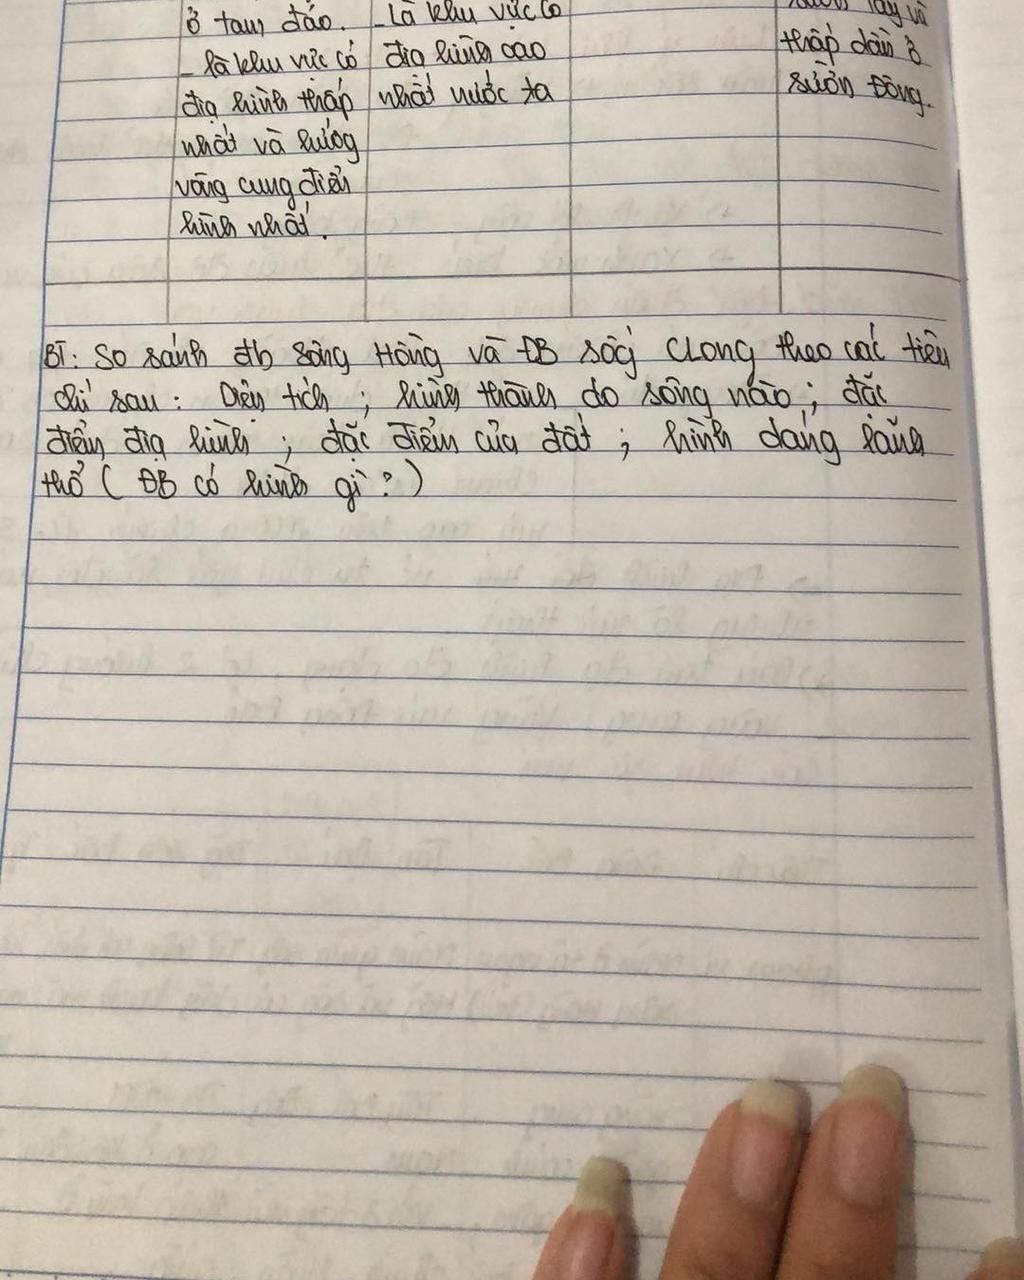 ở tam đảo.
- là khu vực có
địa hình thấp
nhất và hướng
vòng cung điển
hình nhất.
- Là khu vực có
địa hình cao
nhất nước ta
tây và
thấp dần ở
sườn Đông.
BT: So sánh đb sông Hồng và ĐB sôg CLong theo các tiêu
chí sau: Diện tích; hình thành do sông nào; đặc
điểm địa hình; đặc điểm của đất; hình dáng lãnh
thổ (ĐB có hình gì?)